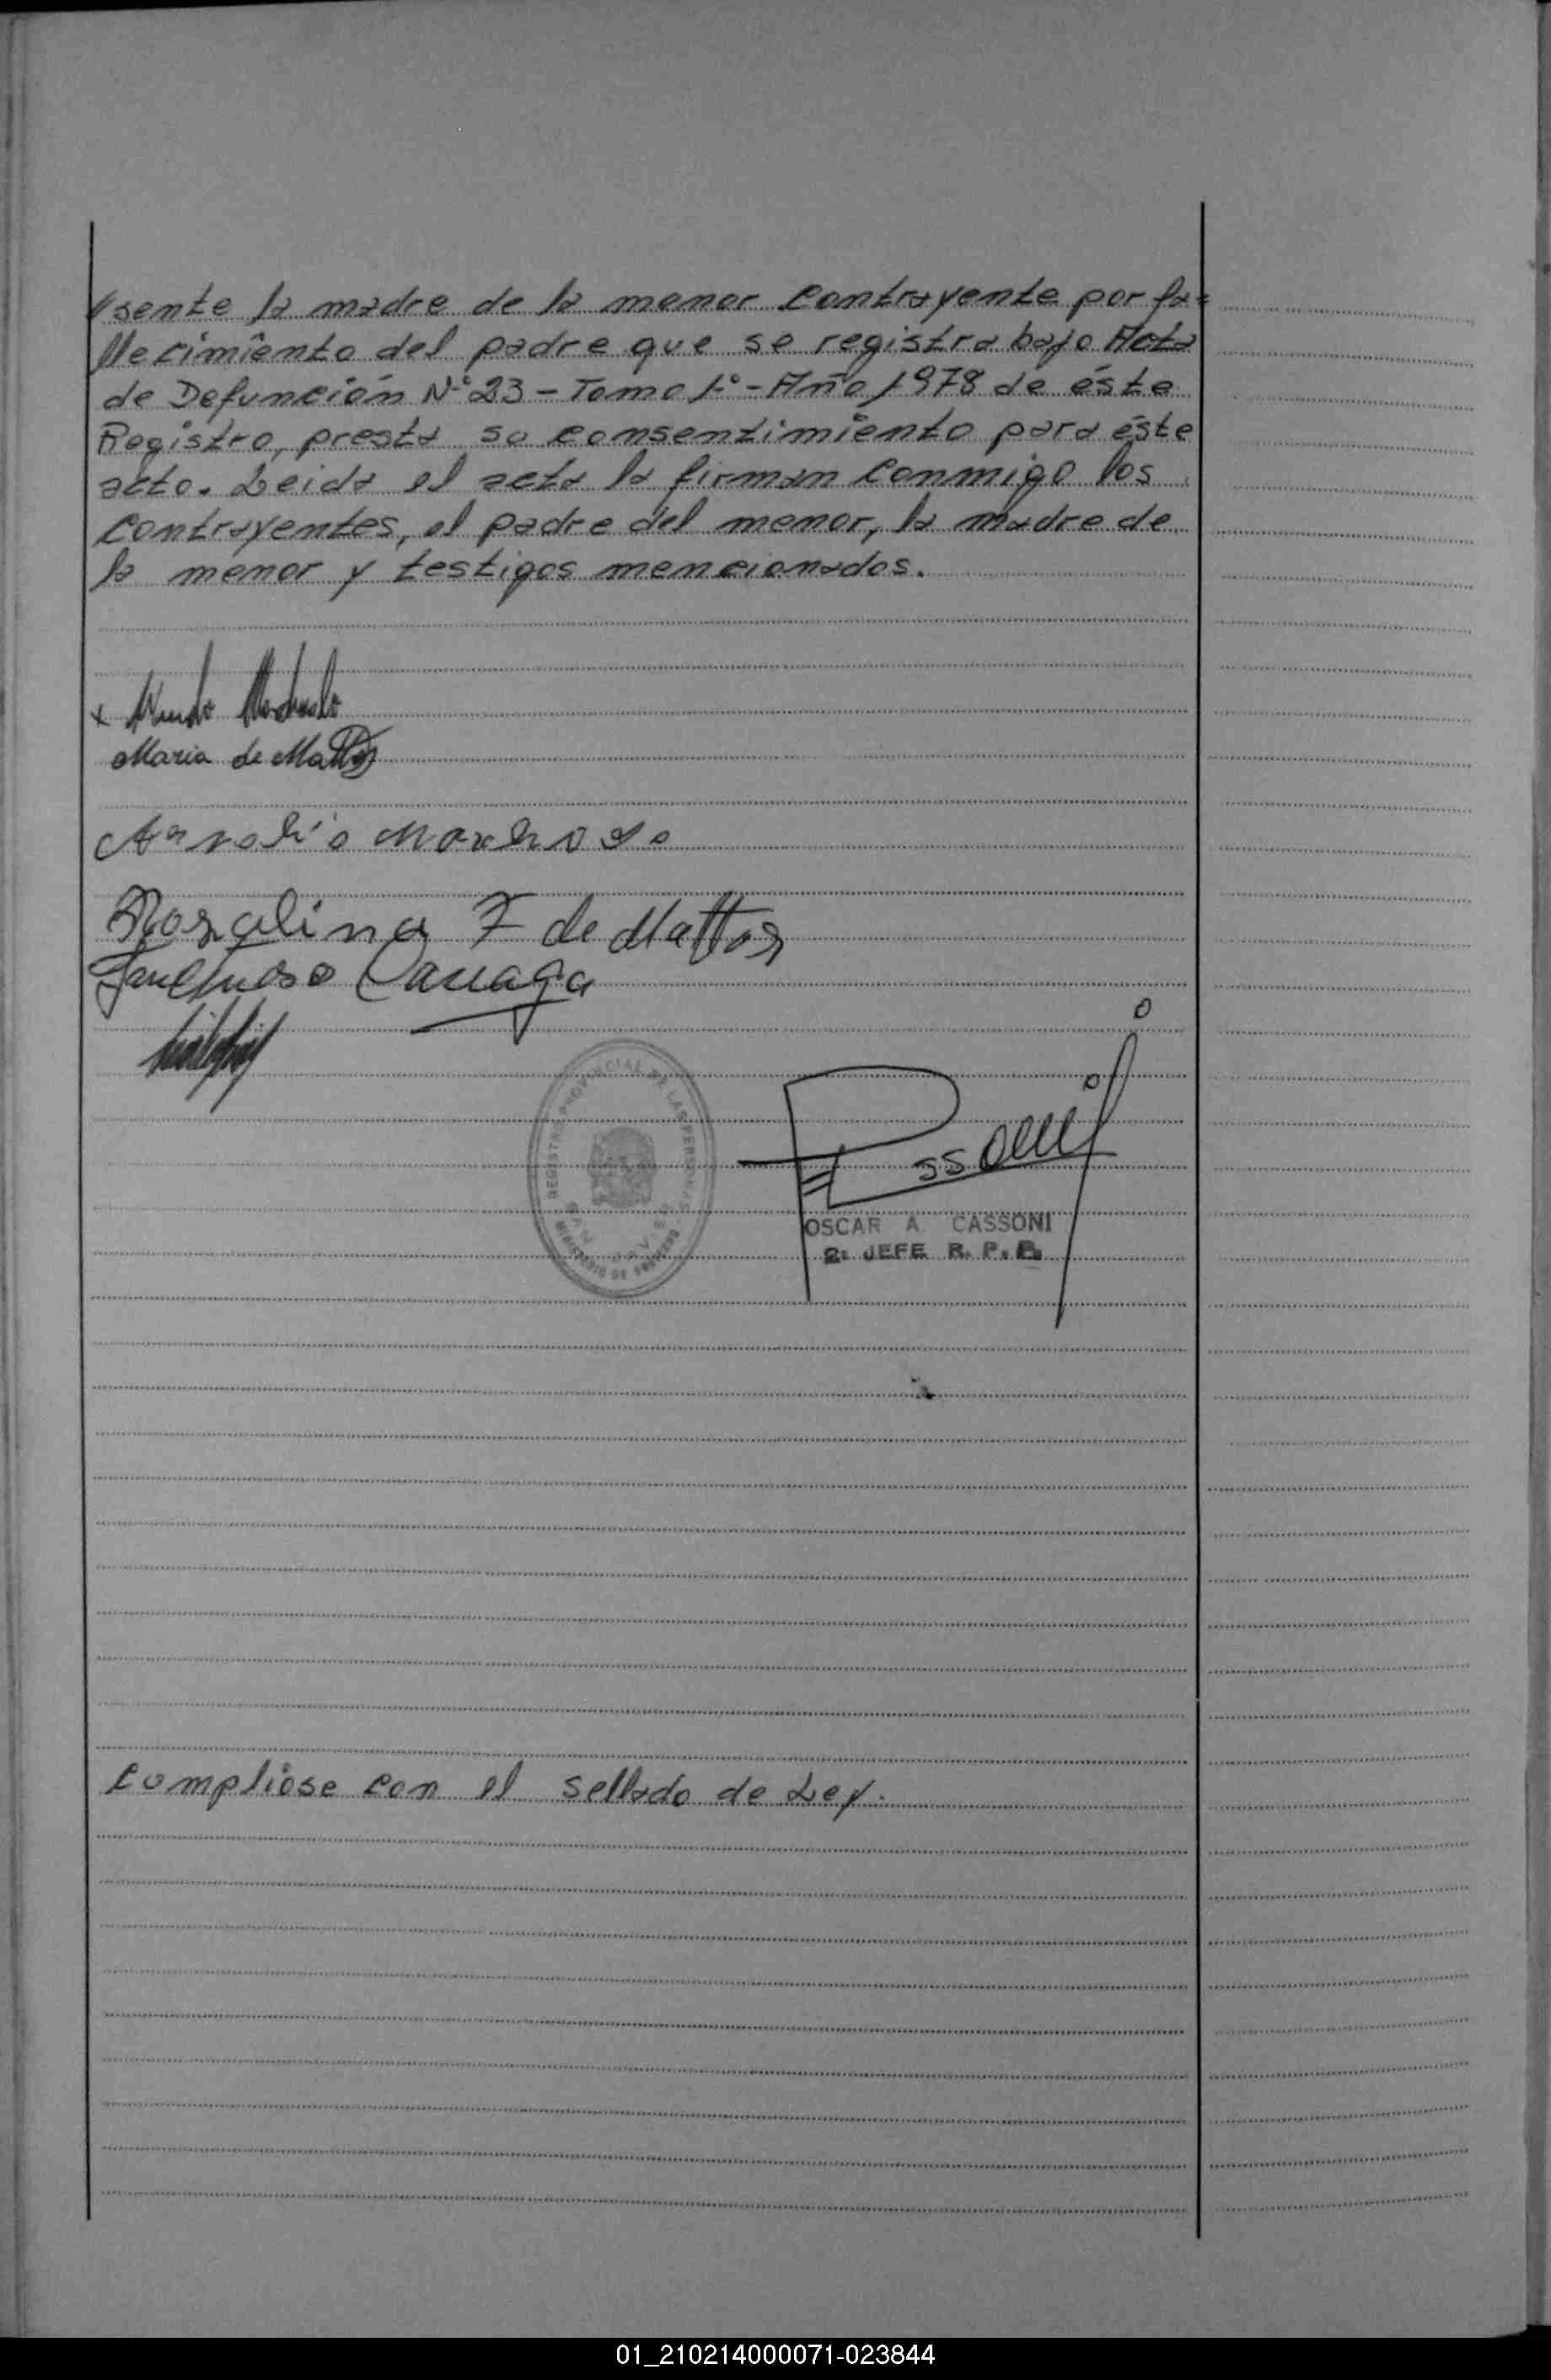 //sente la madre de la menor contrayente por fa=
llecimiento del padre que se registra bajo Acta
de Defunción N° 23 - Tomo 1° - Año 1978 de éste
Registro, presta su consentimiento para éste
acto. Leida el acta la firman conmigo los
contrayentes, el padre del menor, la madre de
la menor y testigos mencionados.
Maria de Mattos
Rosalina F de Mattos
REGISTRO PROVINCIAL DE LAS PERSONAS
OSCAR A. CASSONI
2: JEFE R. P. P.
Compliose con el sellado de Ley.
01_210214000071-023844